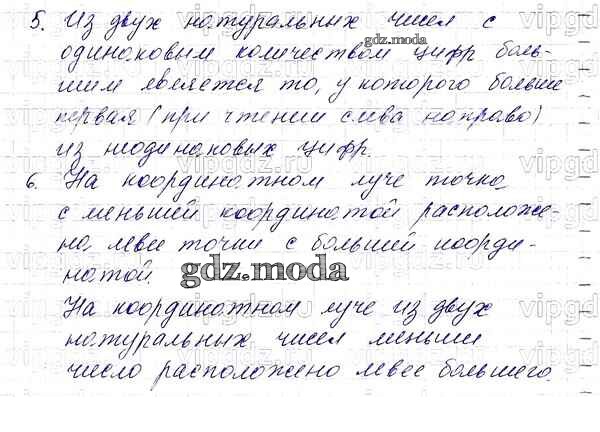 5. Из двух натуральных чисел с
одинаковым количеством цифр боль-
шим является то, у которого больше
первая (при чтении слева направо)
из неодинаковых цифр.
6. На координатном луче точка
с меньшей координатой расположе-
на левее точки с большей коорди-
натой.
gdz.moda
На координатном луче из двух
натуральных чисел меньшее
число расположено левее большего.
gdz.moda